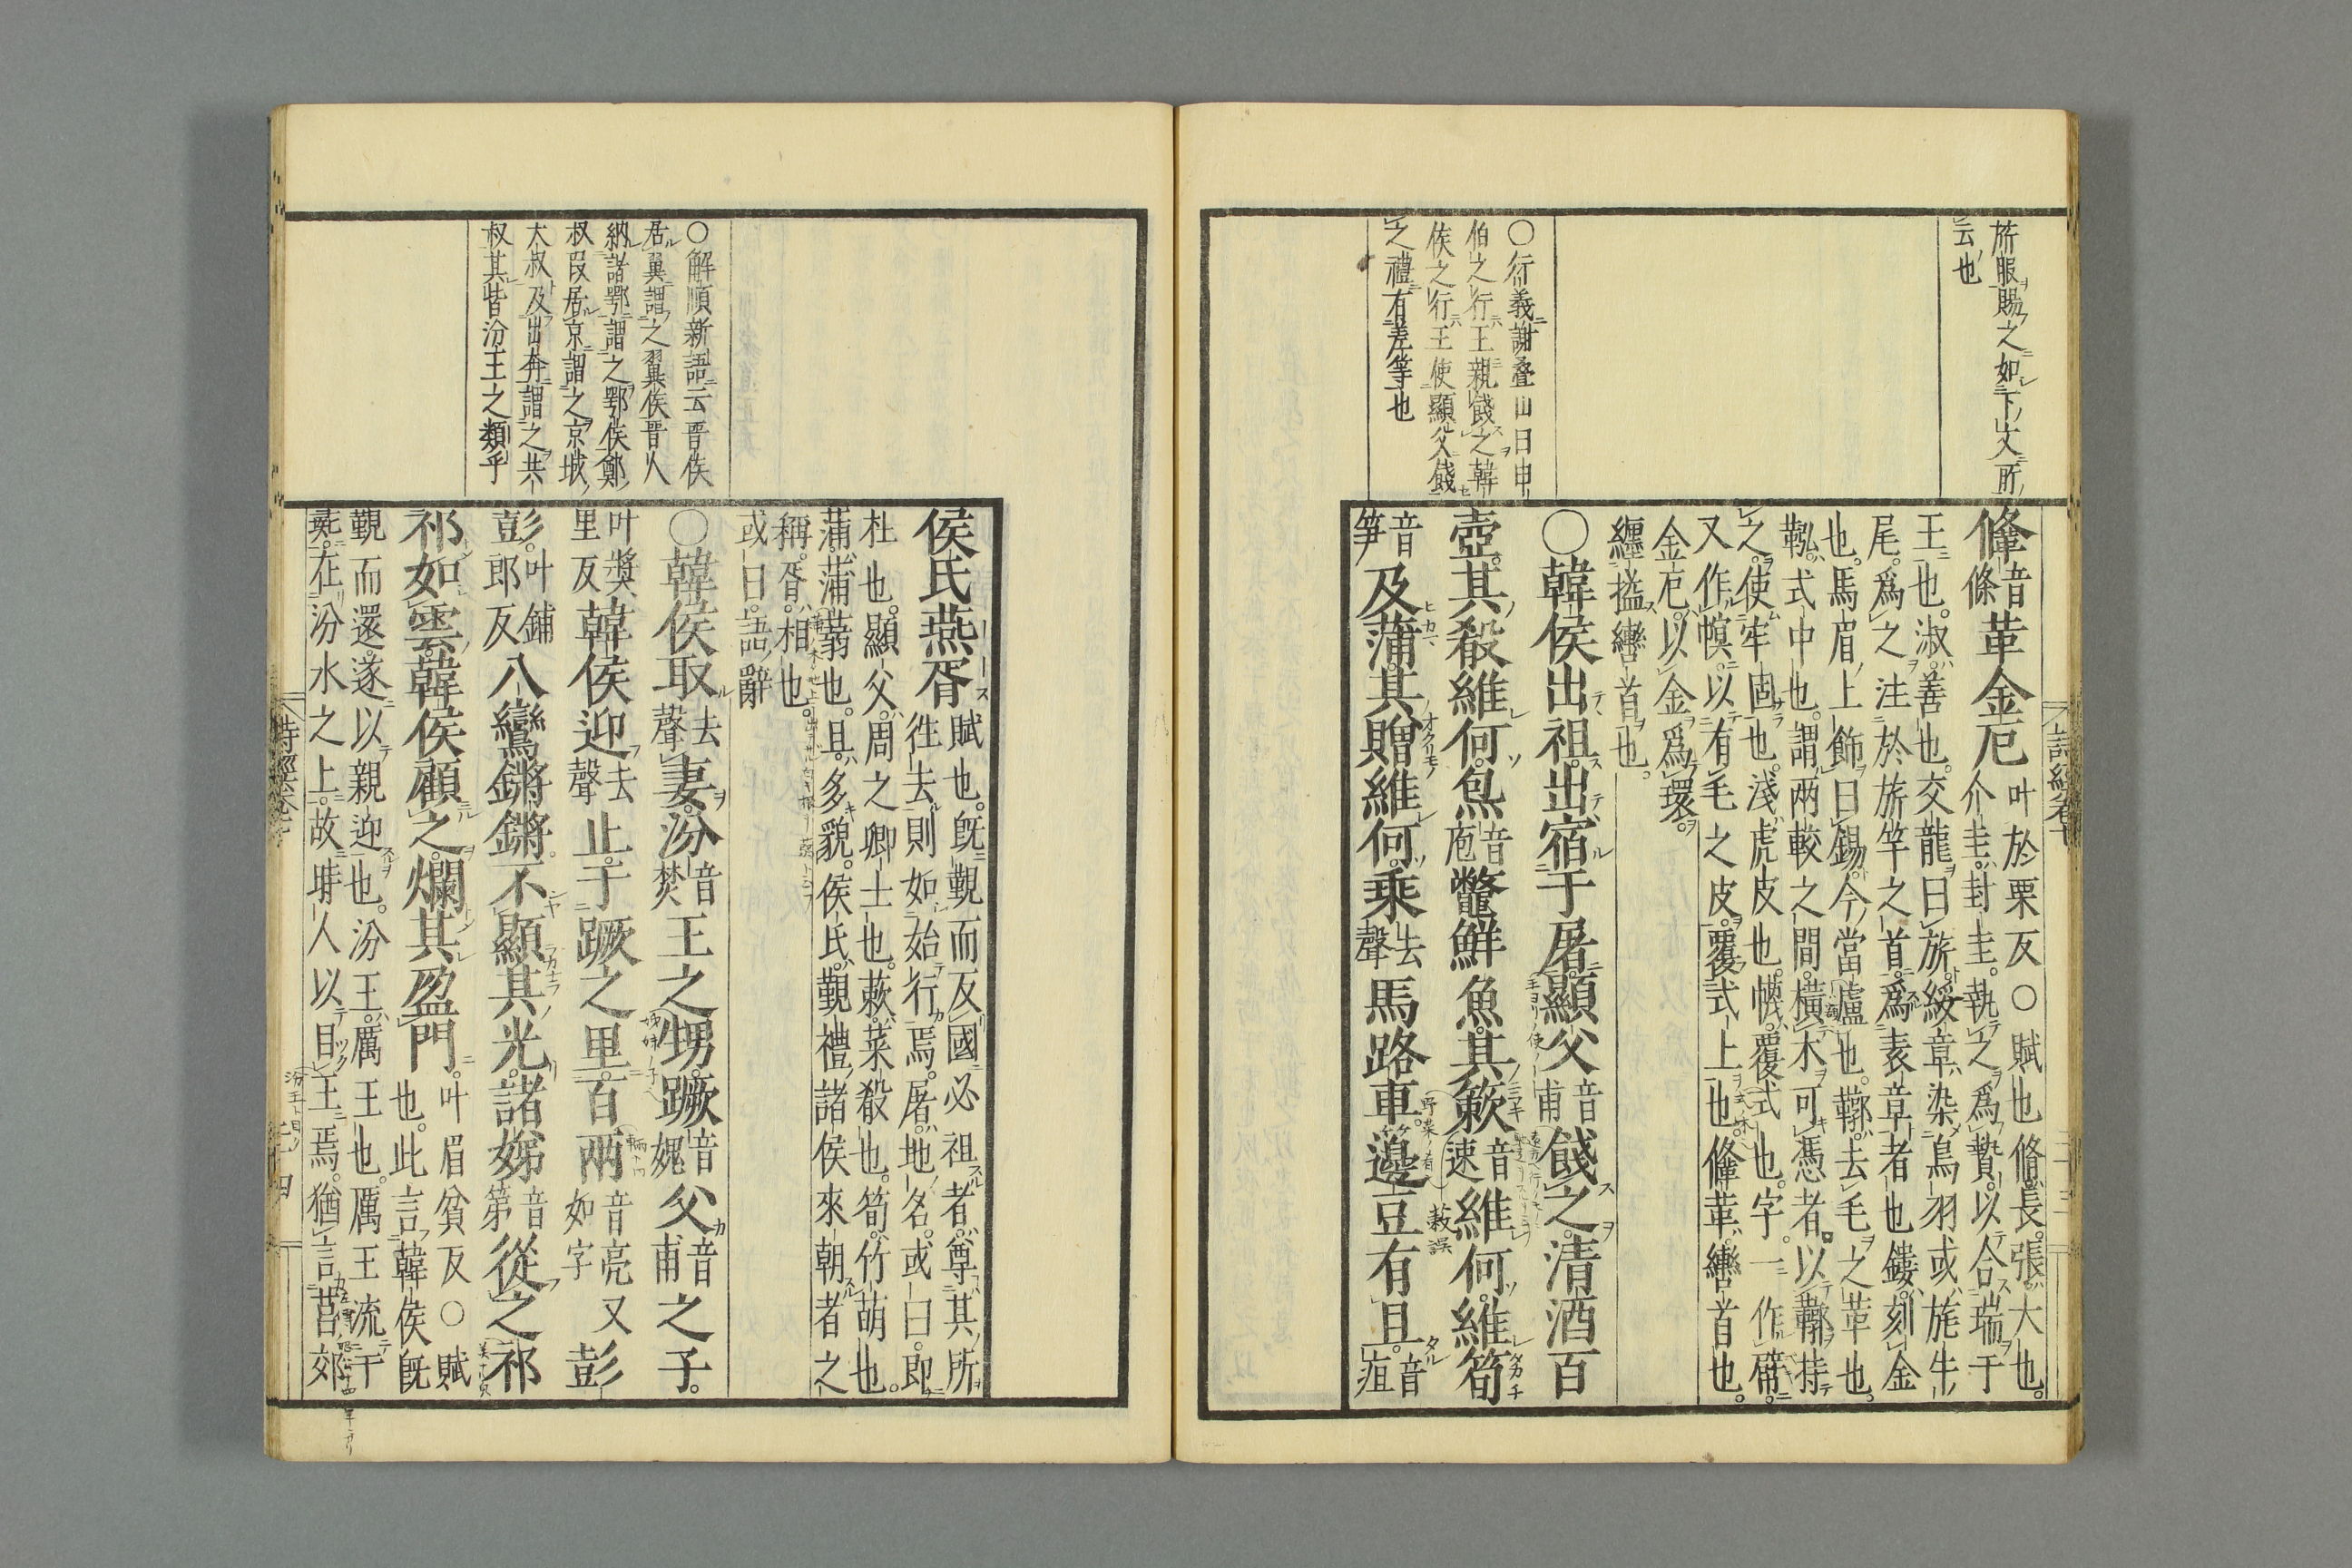 所服賜之如下文所
云也
鞗音條革金厄叶於栗反○賦也脩長張大也
介圭封圭執之爲贄以合瑞于
王也淑善也交龍曰旂綏章染鳥羽或旄牛
尾爲之注於旂竿之首爲表章者也鏤刻金
也馬眉上飾曰鍚今當盧也鞹去毛之革也
鞃式中也謂兩較之間橫木可憑者以鞹持
之使牢固也淺虎皮也幭覆式也字一作幦
又作幎以有毛之皮覆式上也鞗革轡首也
金厄以金爲環
纏搤轡首也
○衍義謝疊山曰申
伯之行王親餞之韓
侯之行王使顯父餞
之禮有差等也
○韓侯出祖出宿于屠顯父音甫餞之清酒百
壺其殽維何炰音庖鼈鮮魚其蔌音速維何維筍
音筝及蒲其贈維何乘去聲馬路車籩豆有且音疽
詩經卷七
侯氏燕胥賦也旣覲而反國必祖者尊其所
往去則如始行焉屠地名或曰即
杜也顯父周之卿士也蔌菜殽也筍竹萌也
蒲蒲蒻也且多貌侯氏覲禮諸侯來朝者之
稱胥相也
或曰語辭
○解順新語云晋侯
居翼謂之翼侯晋人
納諸鄂謂之鄂侯鄭
叔段居京謂之京城
大叔及出奔謂之共
叔其皆汾王之類乎
○韓侯取去聲妻汾音焚王之甥蹶音媿父音甫之子
叶獎里反韓侯迎去聲止于蹶之里百兩音亮又如字彭
彭叶鋪郎反八鸞鏘鏘不顯其光諸娣音第從之祁
祁如雲韓侯顧之爛其盈門叶眉貧反○賦
也此言韓侯旣
覲而還遂以親迎也汾王厲王也厲王流于
彘在汾水之上故時人以目王焉猶言莒郊